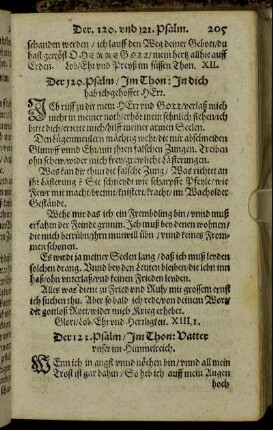 Der. 120. vnd 121. Psalm. 205
schanden werden / ich lauff den Weg deiner Gebott/ du
hast getröst O HERRE GOTT / mein hertz allhie auff
Erden. Lob/Ehr vnd Preyß im süssen Thon. XII.
Der 120. Psalm / Jm Thon: In dich
hab ich gehoffet HErr.
ICh ruff zu dir mein HErr vnd GOTT / verlaß mich
nicht in meiner noth/ erhör mein sehnlich flehen/ ich
bitte dich/ errette mich/ hilff meiner armen Seelen.
Den Lügenmeulern mächtig wehr/ die mir abschneiden
Glimpff vnnd Ehr/ mit ihren falschen Zungen. Treib
ohn schew/ wider mich frewgrewlich Lästerungen.
Was kan dir thun die falsche Zung / Was richtet an
ihr Lästerung? Sie schneydt wie scharpffe Pfeyle/ wie
Fewr mit macht/ brennt/ knistert/ kracht/ im Wacholder
Gestäude.
Wehe mir das ich ein Frembdling bin / vnnd muß
erfahrn der Feinde grimm. Jch muß bey denen wohnen/
die mich betrübn/ ihrn mutwill übn / vnnd keines From-
men schonen.
Es wirdt ja meiner Seelen lang / daß ich muß leyden
solchen drang. Vnnd bey den Leuten bleiben/ die lebn im
Haß/ ohn vnterlaß/ vnd keinen Frieden leyden.
Alles was dient zu Fried vnd Ruh/ mit grossem ernst
ich suchen thu. Aber so bald ich rede/ von deinem Wort/
dit gottloß Rott/ wider mich Krieg erhebet.
Glori/ Lob/ Ehr vnd Herrligkeit. XIII, 1.
Der 121. Psalm / Jm Thon: Vatter
vnser im Himmelreich.
WEnn ich in angst vnnd nöthen bin / vnnd all mein
Trost ist gar dahin / So heb ich auff mein Augen
hoch